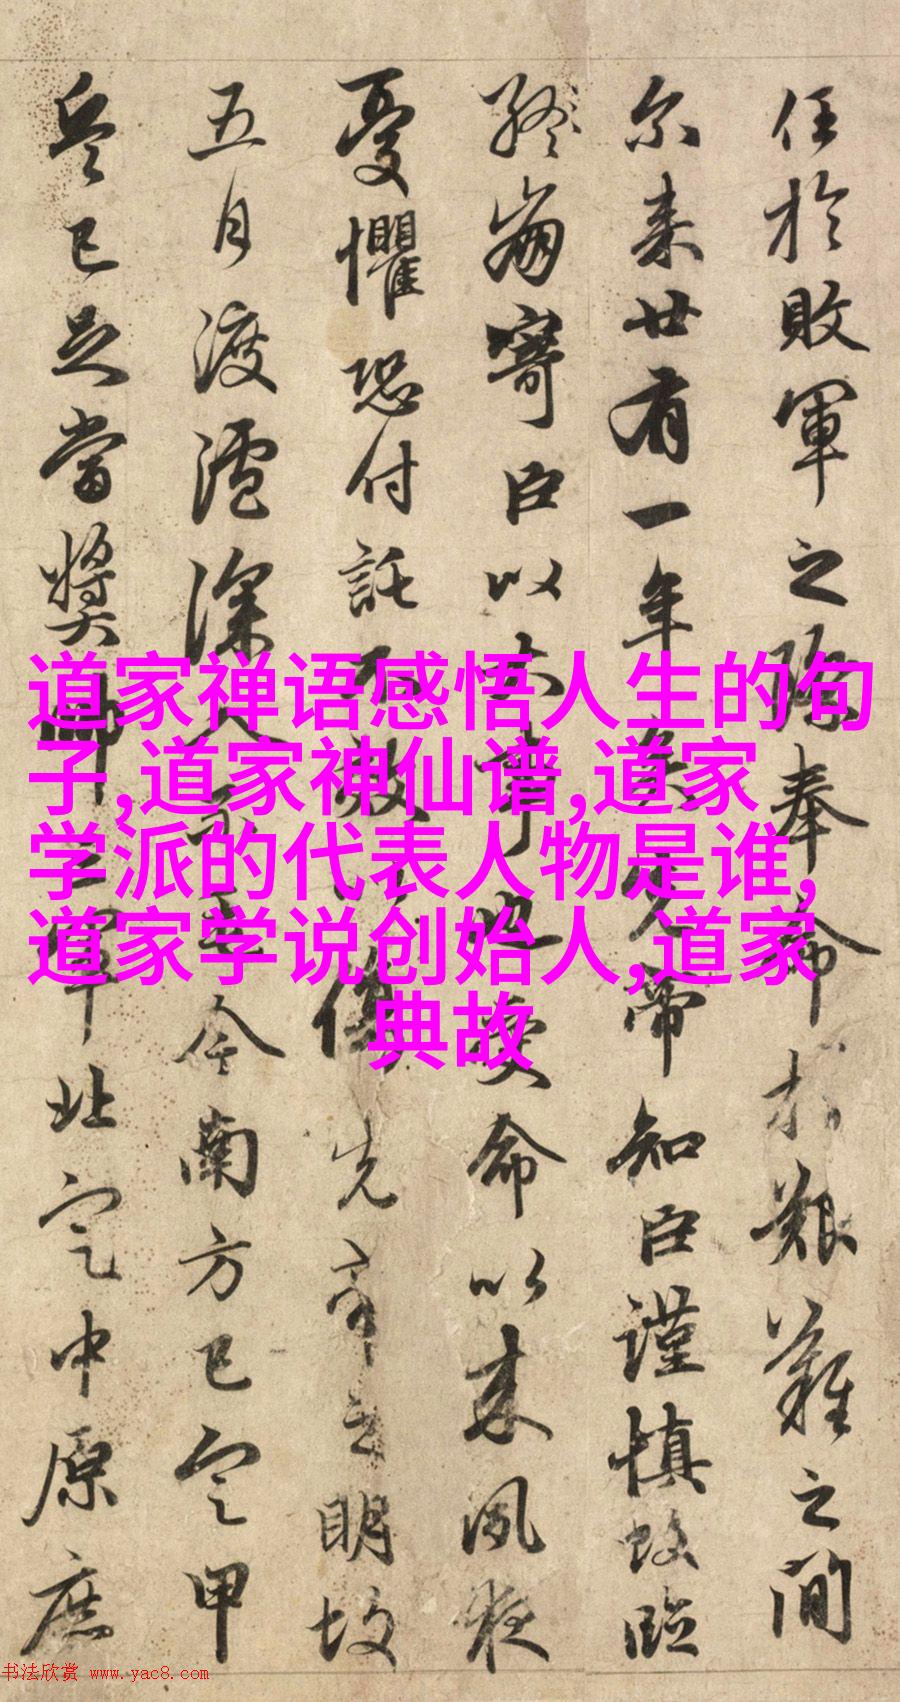 任於敗軍之際奉命於艱難之間
尔来廿有一年矣先帝知臣謹慎故臨
終崩寄臣以大事也受命以来夙夜
憂懼恐付託不效以傷先帝之明故
五月渡瀘深入不毛今南方已定甲
兵已足當獎帥三軍北定中原庶
道家禅语感悟人生的句
子,道家神仙谱,道家
学派的代表人物是谁,
道家学说创始人,道家
典故
书法欣赏 www.yac8.com